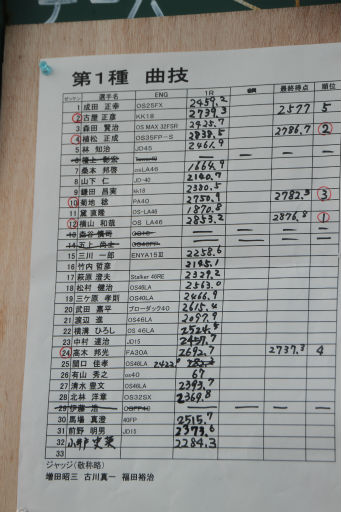 第1種 曲技
ゼッケン 選手名 ENG 1R 最終得点 順位
1 成田 正幸 OS25FX 2459.2 2577 5
2 古屋 正彦 KK18 2739.3
3 森田 賢治 OS MAX 32FSR 2425.9 2786.7 2
4 植松 正成 OS35FP-S 2838.5
5 林 知治 JD45 2461.9
7 桑本 邦啓 osLA46 1664.9
8 山下 仁 JD-40 2140.7
9 鎌田 昌実 kk18 2380.5
10 菊地 稔 PA40 2750.9 2782.3 3
11 黛 直隆 OS-LA46 1870.8
12 横山 和哉 OS LA46 2853.2 2876.8 1
15 三川 一郎 ENYA15Ⅲ 2258.6
16 竹内 哲彦 2195.1
17 萩原 澄夫 Stalker 46RE 2329.2
18 松村 健治 OS46LA 2563.0
19 三ケ原 孝則 OS46LA 2466.9
20 武田 嘉平 ブローダック40 2615.4
21 渡辺 進 OS46LA 2097.9
22 横溝 ひろし OS 46LA 2524.5
23 中村 達治 JD15 2457.7
24 高木 邦光 FA30A 2692.7 2737.3 4
25 関口 佳孝 OS46LA
26 有山 秀之 os40 67
27 清水 豊文 OS46LA 2393.7
28 北林 洋章 OS32SX 2369.8
30 馬場 真澄 40FP 2515.7
31 前野 明男 JD15 2373.6
32 2284.3
33
ジャッジ(敬称略)
増田昭三 古川真一 福田裕治